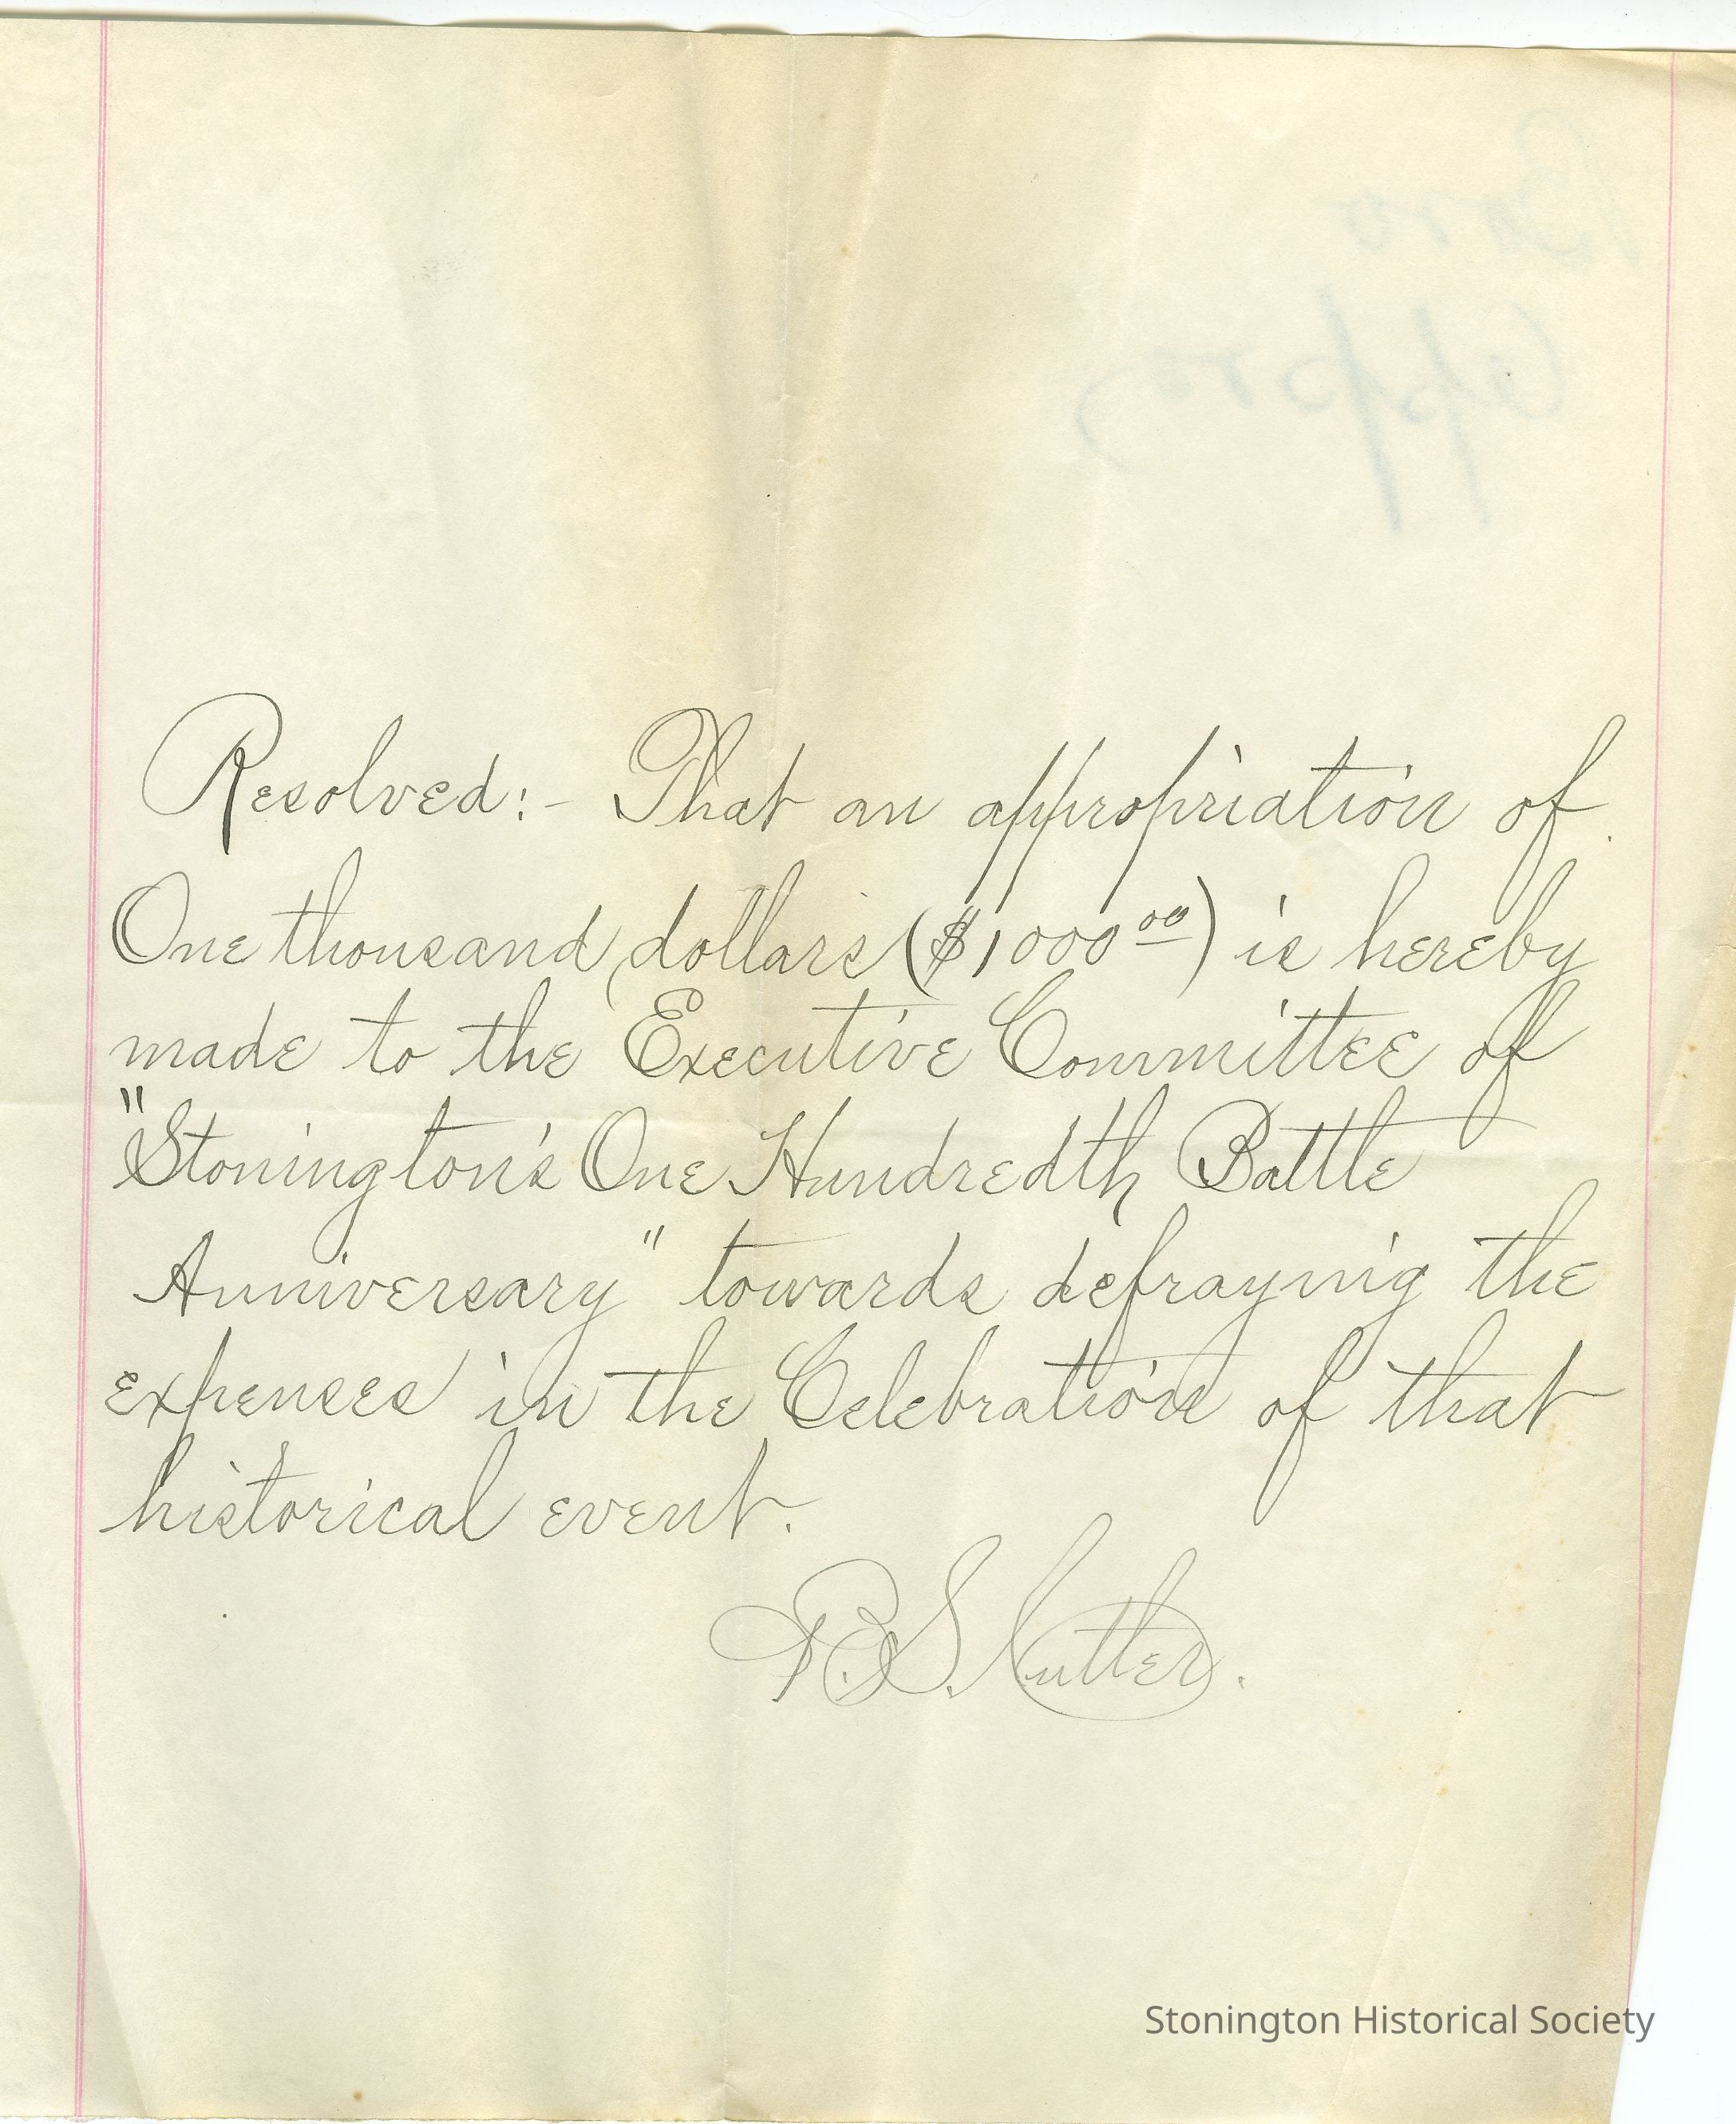 Resolved:- That an appropriation of
One thousand dollars ($1000 00) is hereby
made to the Executive Committee of
"Stonington's One Hundredth Battle
Anniversary" towards defraying the
expenses in the Celebration of that
historical event.
B. S. Cutler.
Stonington Historical Society